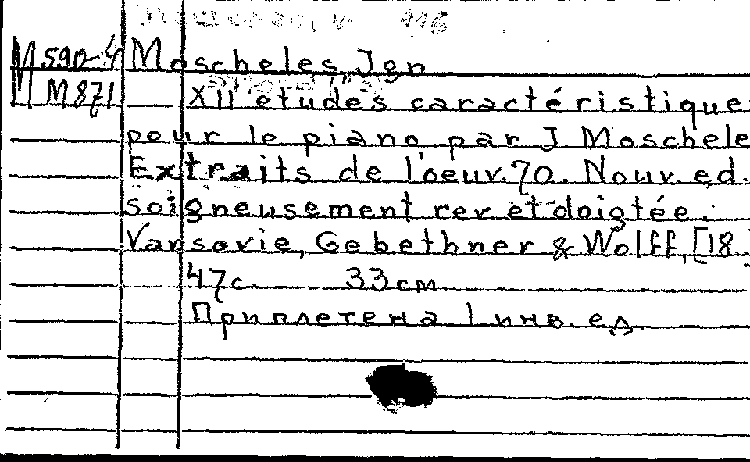 M 590-4 Moscheles, Ign
M 871 XII études caractéristique
pour le piano par J Moschele
Extraits de l'oeuv. 70. Nouv. ed.
soigneusement rev et doigtée.
Varsovie, Gebethner & Wolff, [18
47с 33см
Приплетена 1 инв. ед.